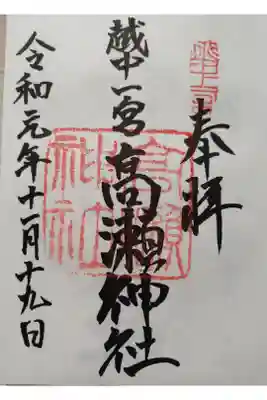 奉拝
越中一宮高瀬神社
高瀬神社
令和元年十一月十九日